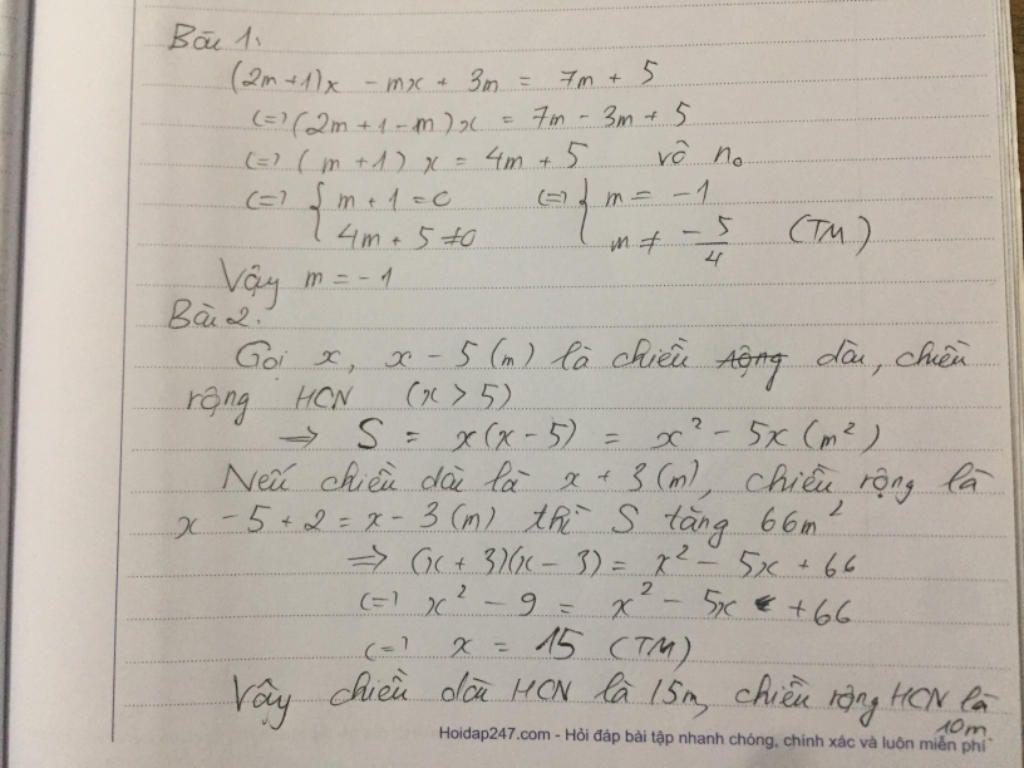 Bài 1.
(2m+1)x - mx + 3m = 7m + 5
(=) (2m+1-m)x = 7m - 3m + 5
(=) (m+1) x = 4m + 5 vô n₀
(=) { m + 1 = 0 (=) { m = -1
4m + 5 ≠ 0 m ≠ -5/4 (TM)
Vậy m = -1
Bài 2.
Gọi x, x - 5 (m) là chiều rộng dài, chiều
rộng HCN (x > 5)
=> S = x(x-5) = x² - 5x (m²)
Nếu chiều dài là x + 3 (m), chiều rộng là
x - 5 + 2 = x - 3 (m) thì S tăng 66m²
=> (x + 3)(x - 3) = x² - 5x + 66
(=) x² - 9 = x² - 5x + 66
(=) x = 15 (TM)
Vậy chiều dài HCN là 15m, chiều rộng HCN là
10m.
Hoidap247.com - Hỏi đáp bài tập nhanh chóng, chính xác và luôn miễn phí